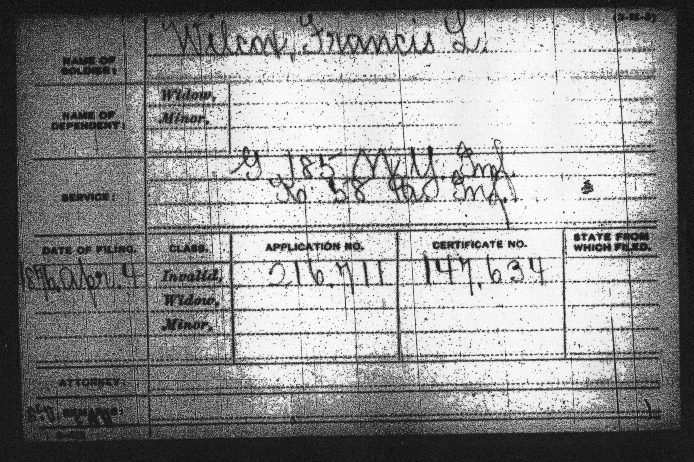 Wilcox, Francis L.
NAME OF SOLDIER:
Widow,
NAME OF DEPENDENT:
Minor,
G 185 N.Y. Inf.
K 58 Pa Inf.
SERVICE:
DATE OF FILING. CLASS. APPLICATION NO. CERTIFICATE NO. STATE FROM WHICH FILED.
1876, Apr. 4 Invalid, 216.711 147.634
Widow,
Minor,
ATTORNEY:
REMARKS: